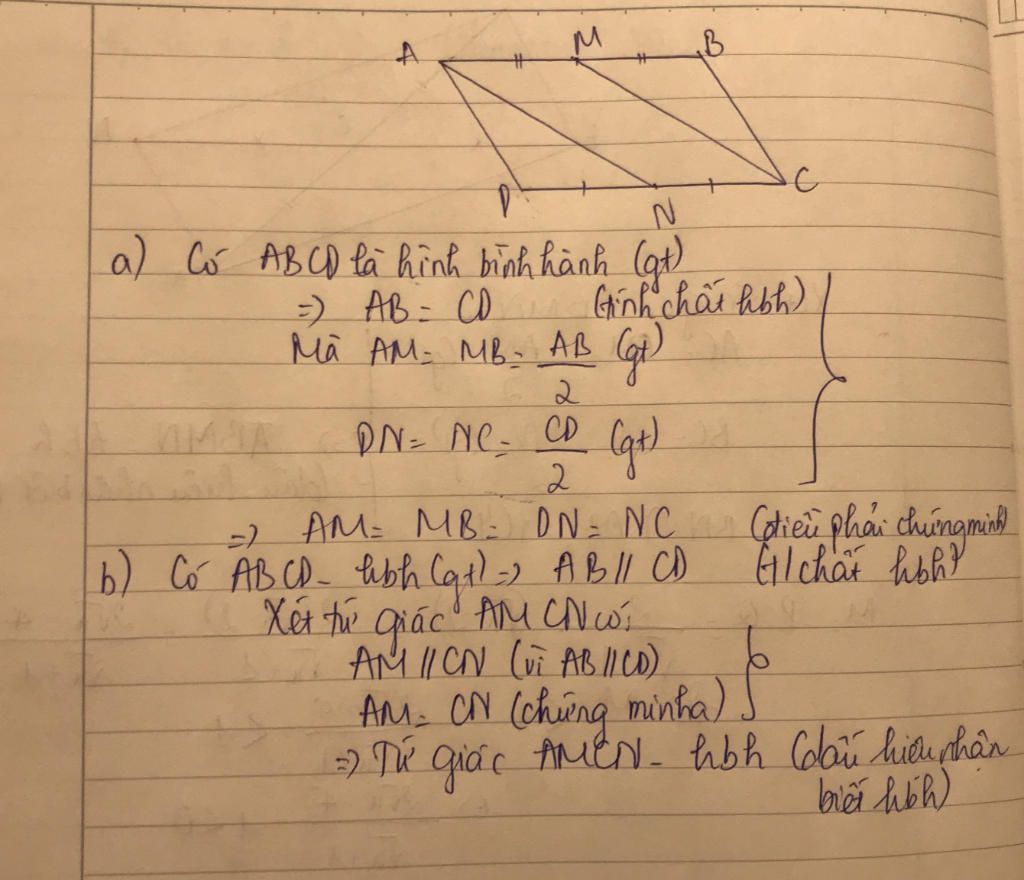 A M B
D N C
a) Có ABCD là hình bình hành (gt)
=> AB = CD (tính chất hbh)
Mà AM = MB = AB/2 (gt)
DN = NC = CD/2 (gt)
=> AM = MB = DN = NC (điều phải chứng minh)
b) Có ABCD - hbh (gt) => AB // CD (t/chất hbh)
Xét tứ giác AMCN có:
AM // CN (vì AB // CD)
AM = CN (chứng minh a)
=> Tứ giác AMCN - hbh (dấu hiệu nhận
biết hbh)